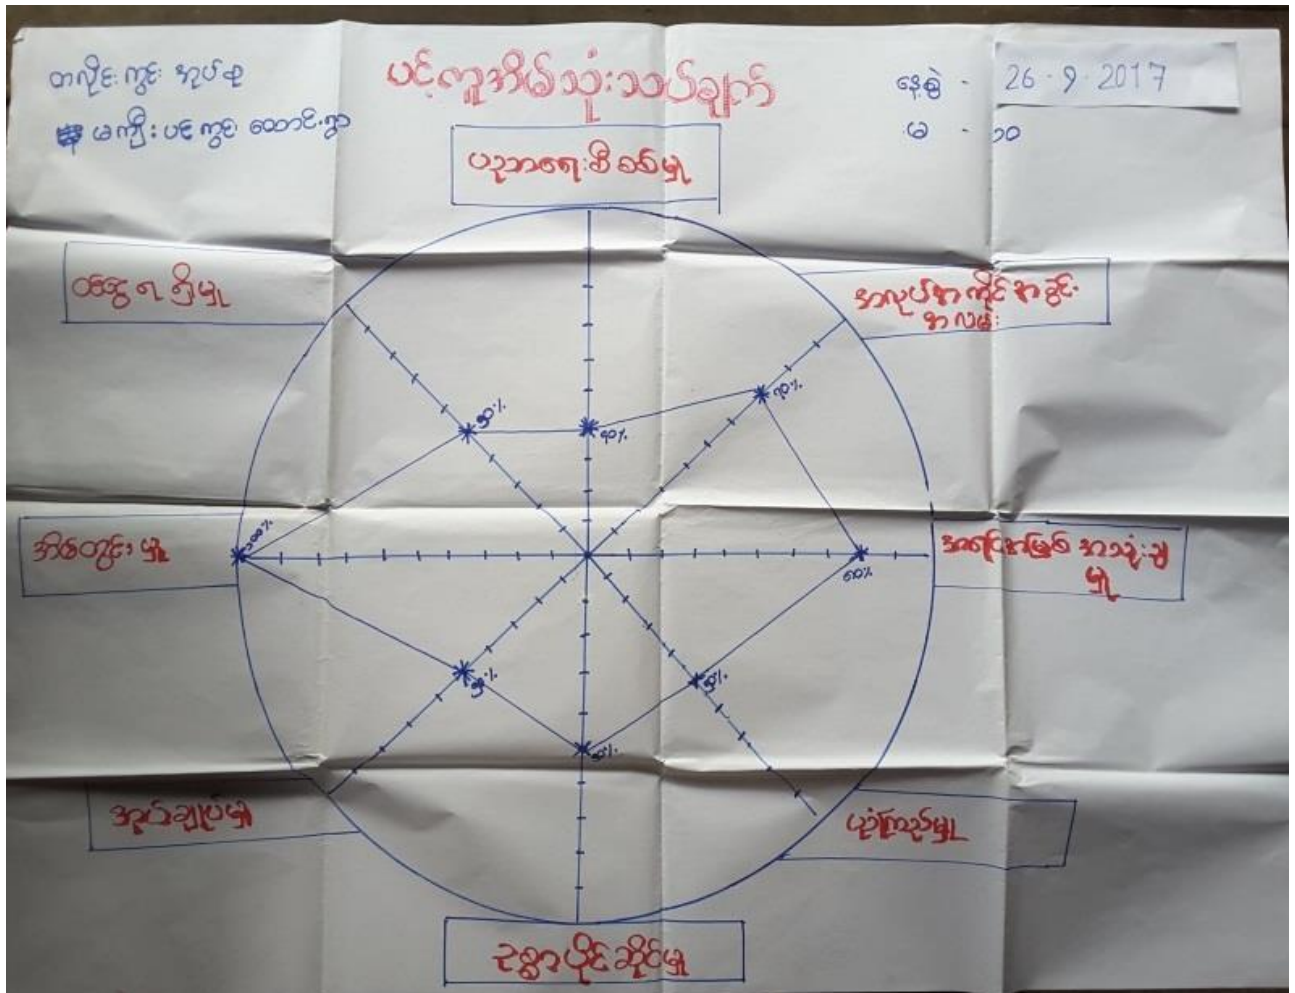 တလိုင်းကွင်း အုပ်စု
မကျီးပင်ကွင်း တောင်းရွာ
ပင့်ကူအိမ်သုံးသပ်ချက်
နေ့စွဲ - 26.9.2017
မ - ၁၀
ပညာရေးစီစစ်မှု
ဝင်ငွေရရှိမှု
အလုပ်အကိုင်အခွင့်
အလမ်း
၅၀%
၄၀%
၇၀%
၁၀၀%
အိမ်တွင်းမှု
အရင်းအမြစ် အသုံးချ
မှု
၅၀%
၅၀%
၅၀%
အုပ်ချုပ်မှု
ယုံကြည်မှု
ဥစ္စာပိုင်ဆိုင်မှု